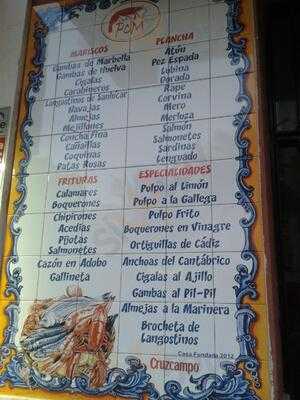 PCM
MARISCOS
Gambas de Marbella
Gambas de Huelva
Cigalas
Carabineros
Langostinos de Sanlúcar
Navajas
Almejas
Mejillones
Concha Fina
Cañaíllas
Coquinas
Patas Rusas
PLANCHA
Atún
Pez Espada
Lubina
Dorada
Rape
Corvina
Mero
Merluza
Salmón
Salmonetes
Sardinas
Lenguado
FRITURAS
Calamares
Boquerones
Chipirones
Acedías
Pijotas
Salmonetes
Cazón en Adobo
Gallineta
ESPECIALIDADES
Pulpo al Limón
Pulpo a la Gallega
Pulpo Frito
Boquerones en Vinagre
Ortiguillas de Cádiz
Anchoas del Cantábrico
Cigalas al Ajillo
Gambas al Pil-Pil
Almejas a la Marinera
Brocheta de
Langostinos
Casa Fundada 2012
Cruzcampo